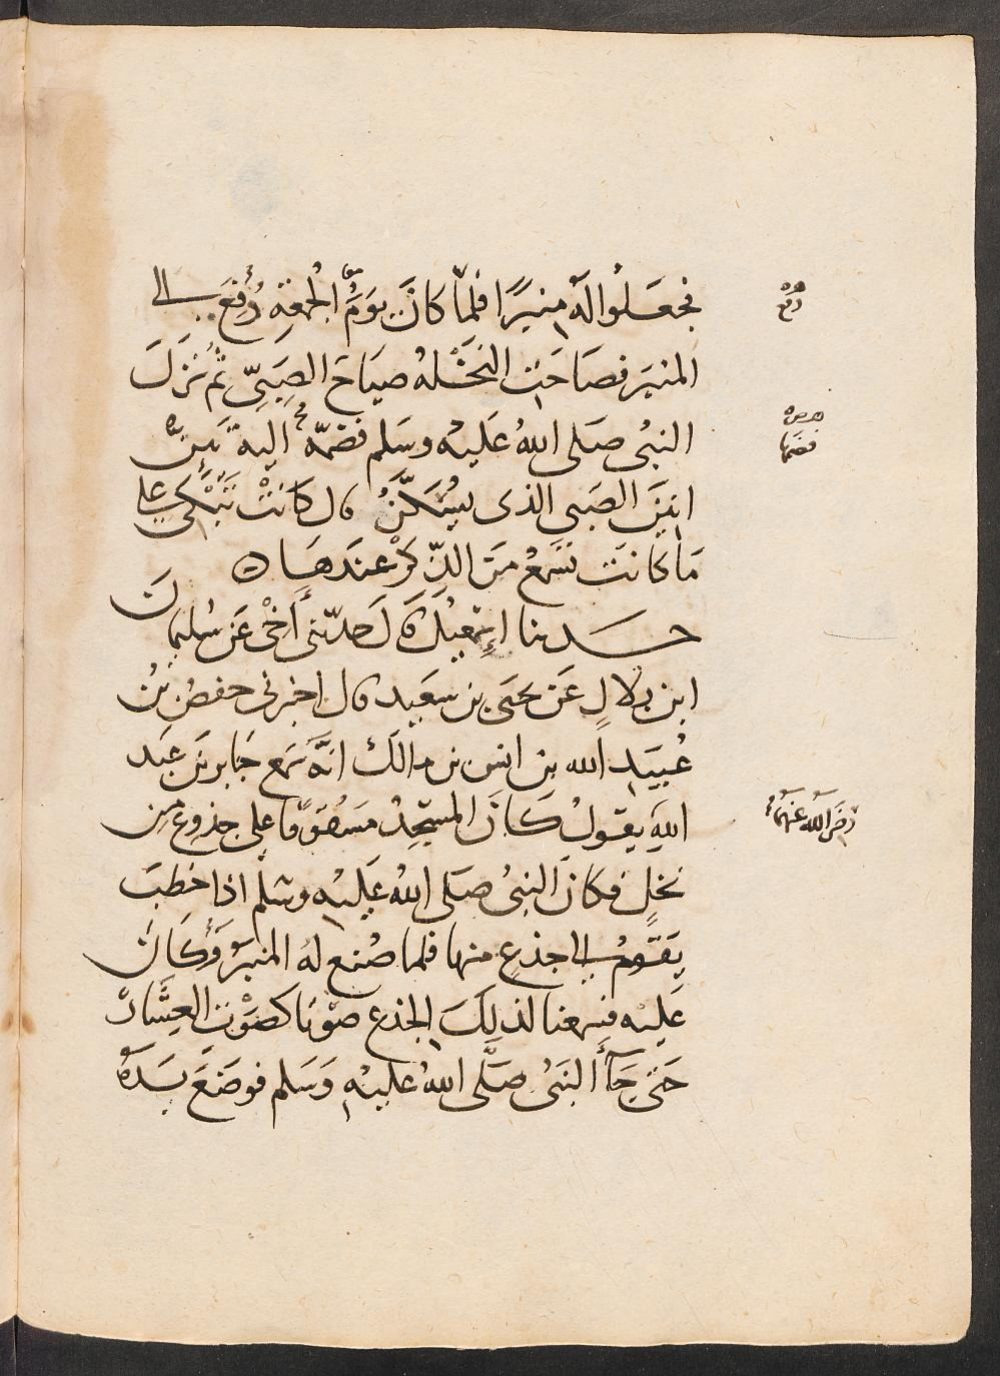 فجعلوا له منبرًا فلمّا كانَ يَومُ الجُمعَةِ دُفِعَ الى
المنبَرِ فصَاحَتِ النَخْلَةُ صيَاحَ الصَبِيِّ ثُم نَزَلَ
النبيُ صَلى اللهُ عَليه وسَلم فضمّهُ اليهِ تَئِنُّ
انينَ الصَبي الذى يُسَكَّنُ قال كَانَتْ تَبْكى على
مَا كانت تَسمعُ مِنَ الذِّكرِ عندَها ه
حدثنا اسمعيلُ قَالَ حدّثنى أخى عَن سُليمانَ
ابن بلالٍ عَن يحيَى بن سَعيد قال اخبرنى حفصُ بْنُ
عُبَيدِ الله بن انس بن مالك انّهُ سَمع جَابرَ بنَ عَبد
اللهِ يقولُ كانَ المسجِدُ مَسقُوفًا على جذوعٍ مِن
نخلٍ فكانَ النبىُ صَلى اللهُ عَليْه وسَلم اذا خطبَ
يَقومُ الى جذعٍ منها فلما صُنع لهُ المنبَرُ وَكانَ
عَليه فسَمعنا لذلكَ الجذع صَوْتا كصَوْت العِشَارِ
حَتى جَآءَ النبَىُ صَلَّى اللهُ عليْهِ وَسَلم فوضَعَ يَدَهُ
رُفِعَ
فضَمّها
رَضىَ اللّه عَنهُمَا